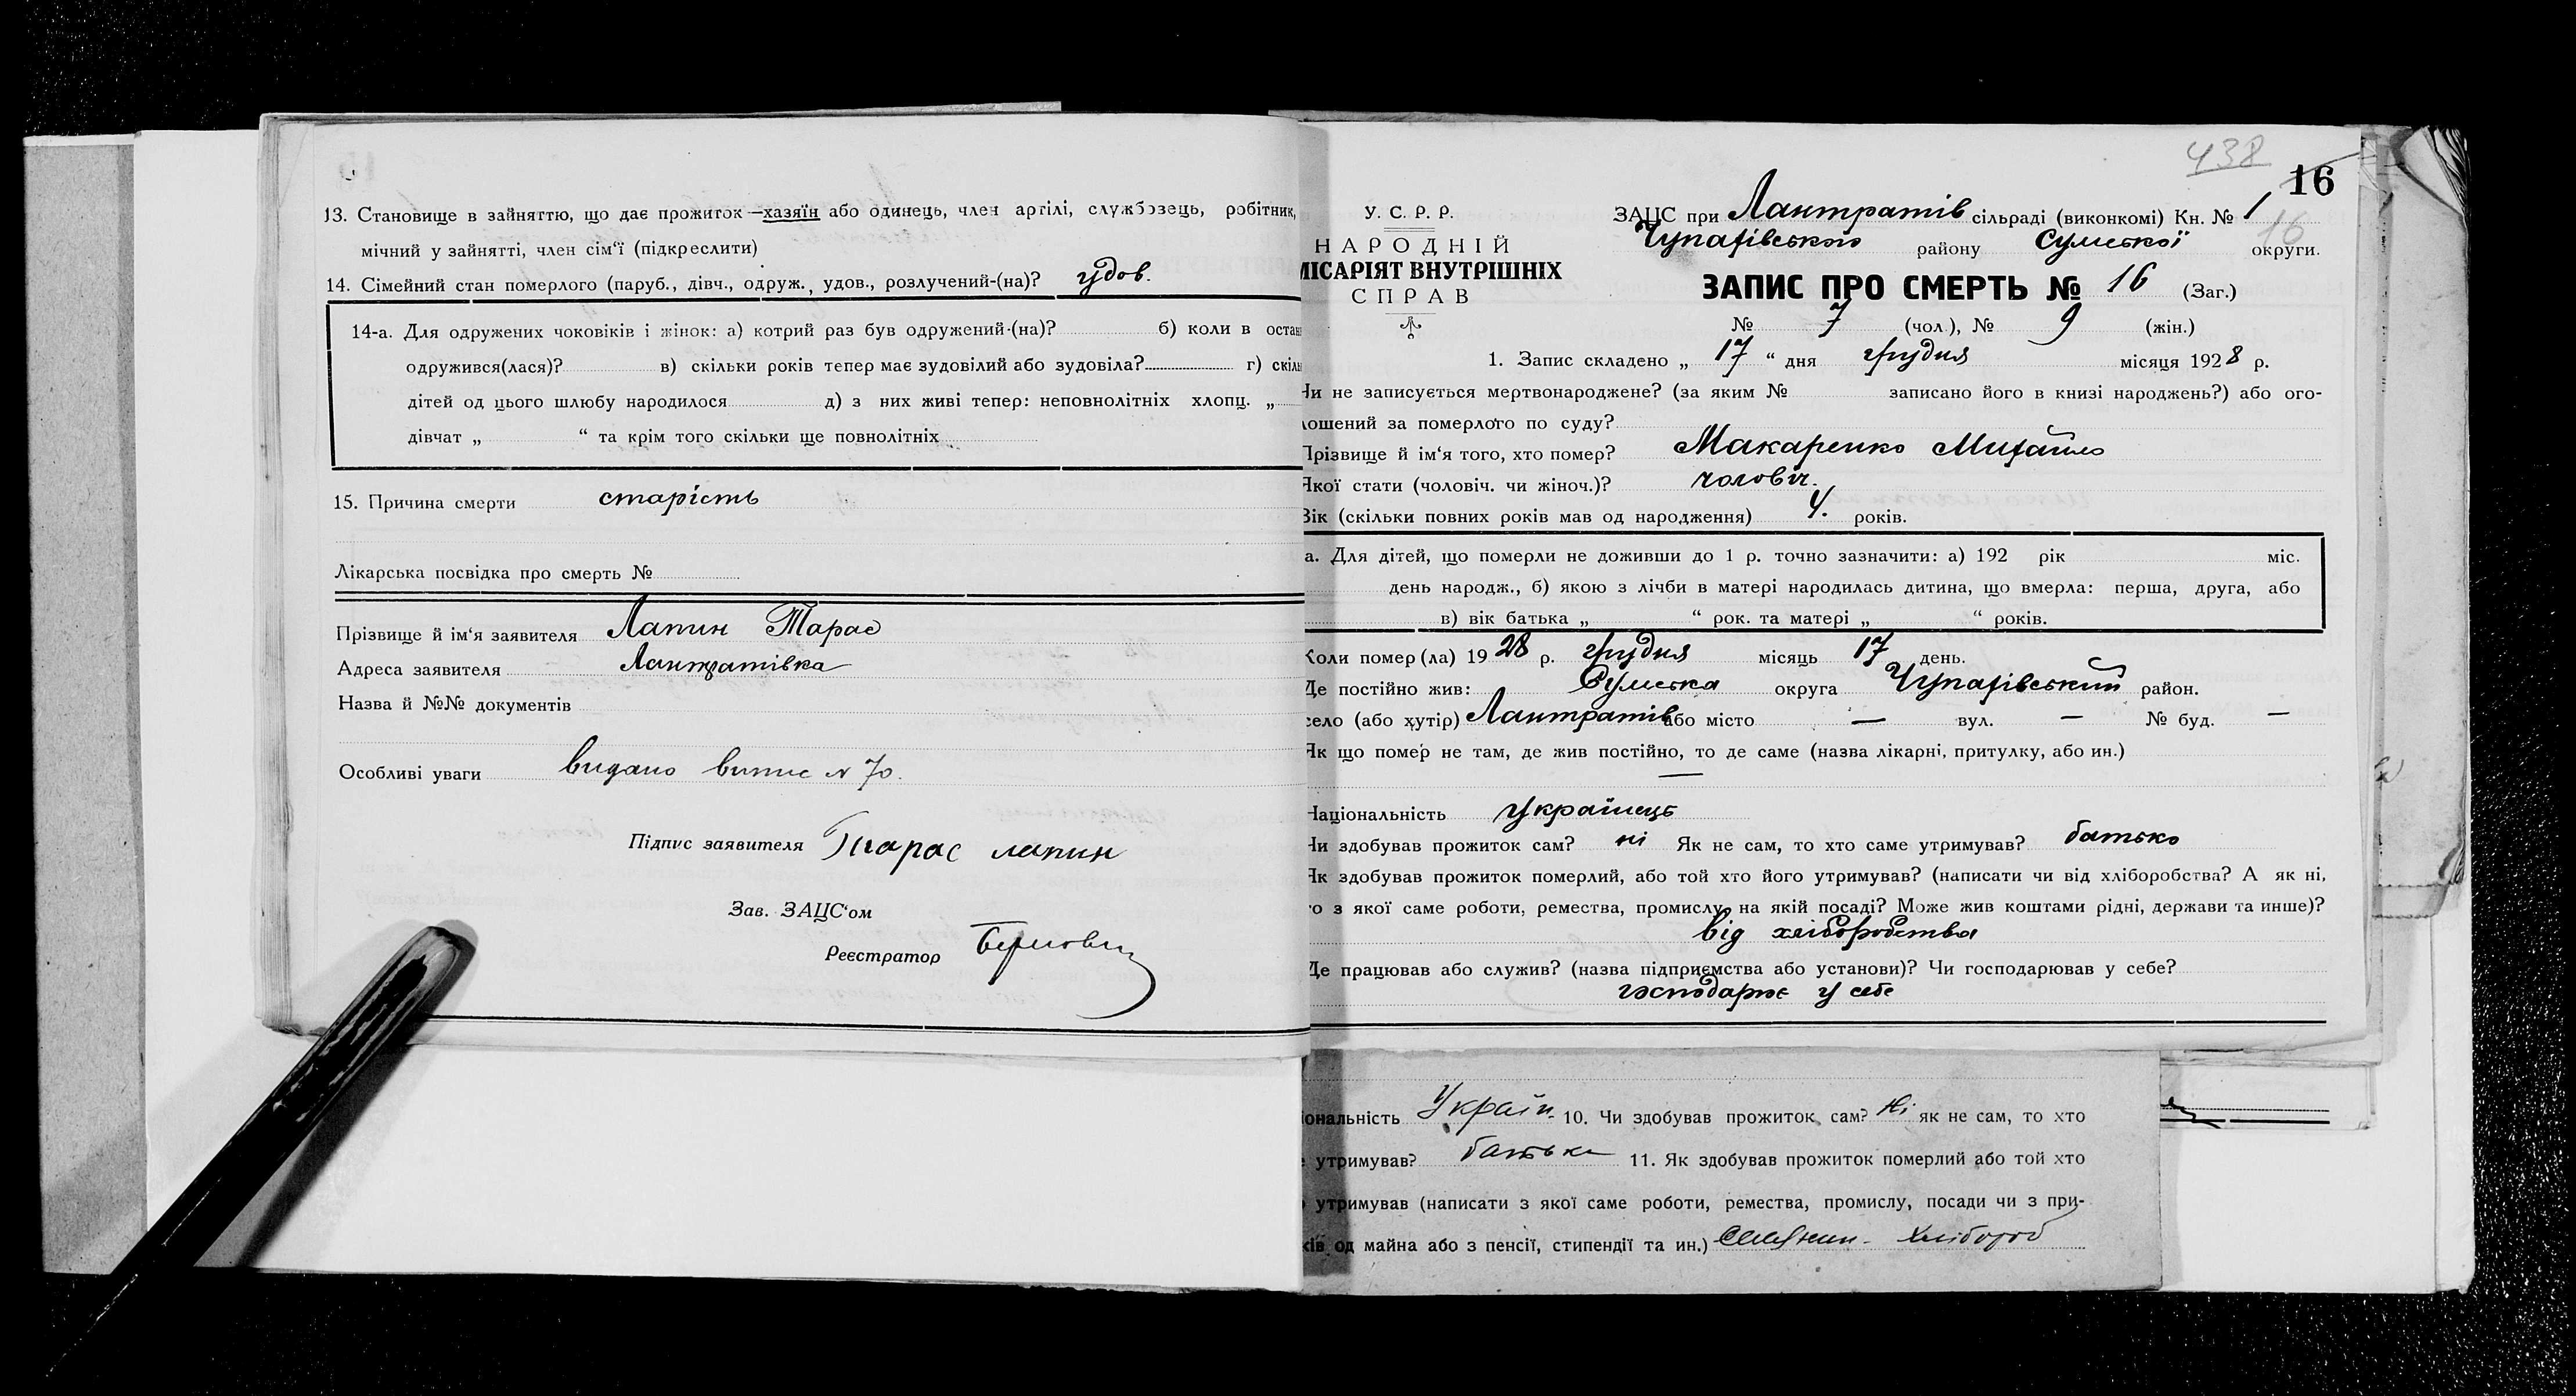 13. Становище в зайняттю, що дає прожиток—хазяїн або одинець, член артілі, службовець, робітник,
мічний у зайнятті, член сім‘ї (підкреслити)
14. Сімейний стан померлого (паруб., дівч., одруж., удов., розлучений-(на)? удов.
14-а. Для одружених чоковіків і жінок: а) котрий раз був одружений-(на)? б) коли в остан
одружився(лася)? в) скільки років тепер має зудовілий або зудовіла? г) скіль
дітей од цього шлюбу народилося д) з них живі тепер: неповнолітніх хлопц. „
дівчат „ “ та крім того скільки ще повнолітніх
15. Причина смерти старість
Лікарська посвідка про смерть №
Прізвище й ім‘я заявителя Лапин Тарас
Адреса заявителя Лантратівка
Назва й №№ документів
Особливі уваги видано випис № 70.
Підпис заявителя Тарас лапин
Зав. ЗАЦС‘ом
Реєстратор
438
16
У. С. Р. Р.
НАРОДНІЙ
МІСАРІЯТ ВНУТРІШНІХ
СПРАВ
ЗАЦС при Лантратів сільраді (виконкомі) Кн. № 1
16
Чупахівського району Сумської округи.
ЗАПИС ПРО СМЕРТЬ № 16 (Заг.)
№ 7 (чол.), № 9 (жін.)
1. Запис складено „ 17 “ дня грудня місяця 1928 р.
Чи не записується мертвонароджене? (за яким № записано його в книзі народжень?) або ого-
лошений за померлого по суду?
Прізвище й ім‘я того, хто помер? Макаренко Михайло
Якої стати (чоловіч. чи жіноч.)? чоловіч.
Вік (скільки повних років мав од народження) 4. років.
а. Для дітей, що померли не доживши до 1 р. точно зазначити: а) 192 рік міс.
день народж., б) якою з лічби в матері народилась дитина, що вмерла: перша, друга, або
в) вік батька „ “ рок. та матері „ “ років.
Коли помер(ла) 1928 р. грудня місяць 17 день.
Де постійно жив: Сумська округа Чупахівський район.
село (або хутір) Лантратів або місто — вул. — № буд. —
Як що помер не там, де жив постійно, то де саме (назва лікарні, притулку, або ин.)
—
Національність українець
Чи здобував прожиток сам? ні Як не сам, то хто саме утримував? батько
Як здобував прожиток померлий, або той хто його утримував? (написати чи від хліборобства? А як ні,
то з якої саме роботи, ремества, промислу, на якій посаді? Може жив коштами рідні, держави та инше)?
від хліборобства
Де працював або служив? (назва підприємства або установи)? Чи господарював у себе?
господарює у себе
іональність Україн. 10. Чи здобував прожиток сам? Ні як не сам, то хто
утримував? батько 11. Як здобував прожиток померлий або той хто
утримував (написати з якої саме роботи, ремества, промислу, посади чи з при-
ків од майна або з пенсії, стипендії та ин.) Селянин - Хлібороб